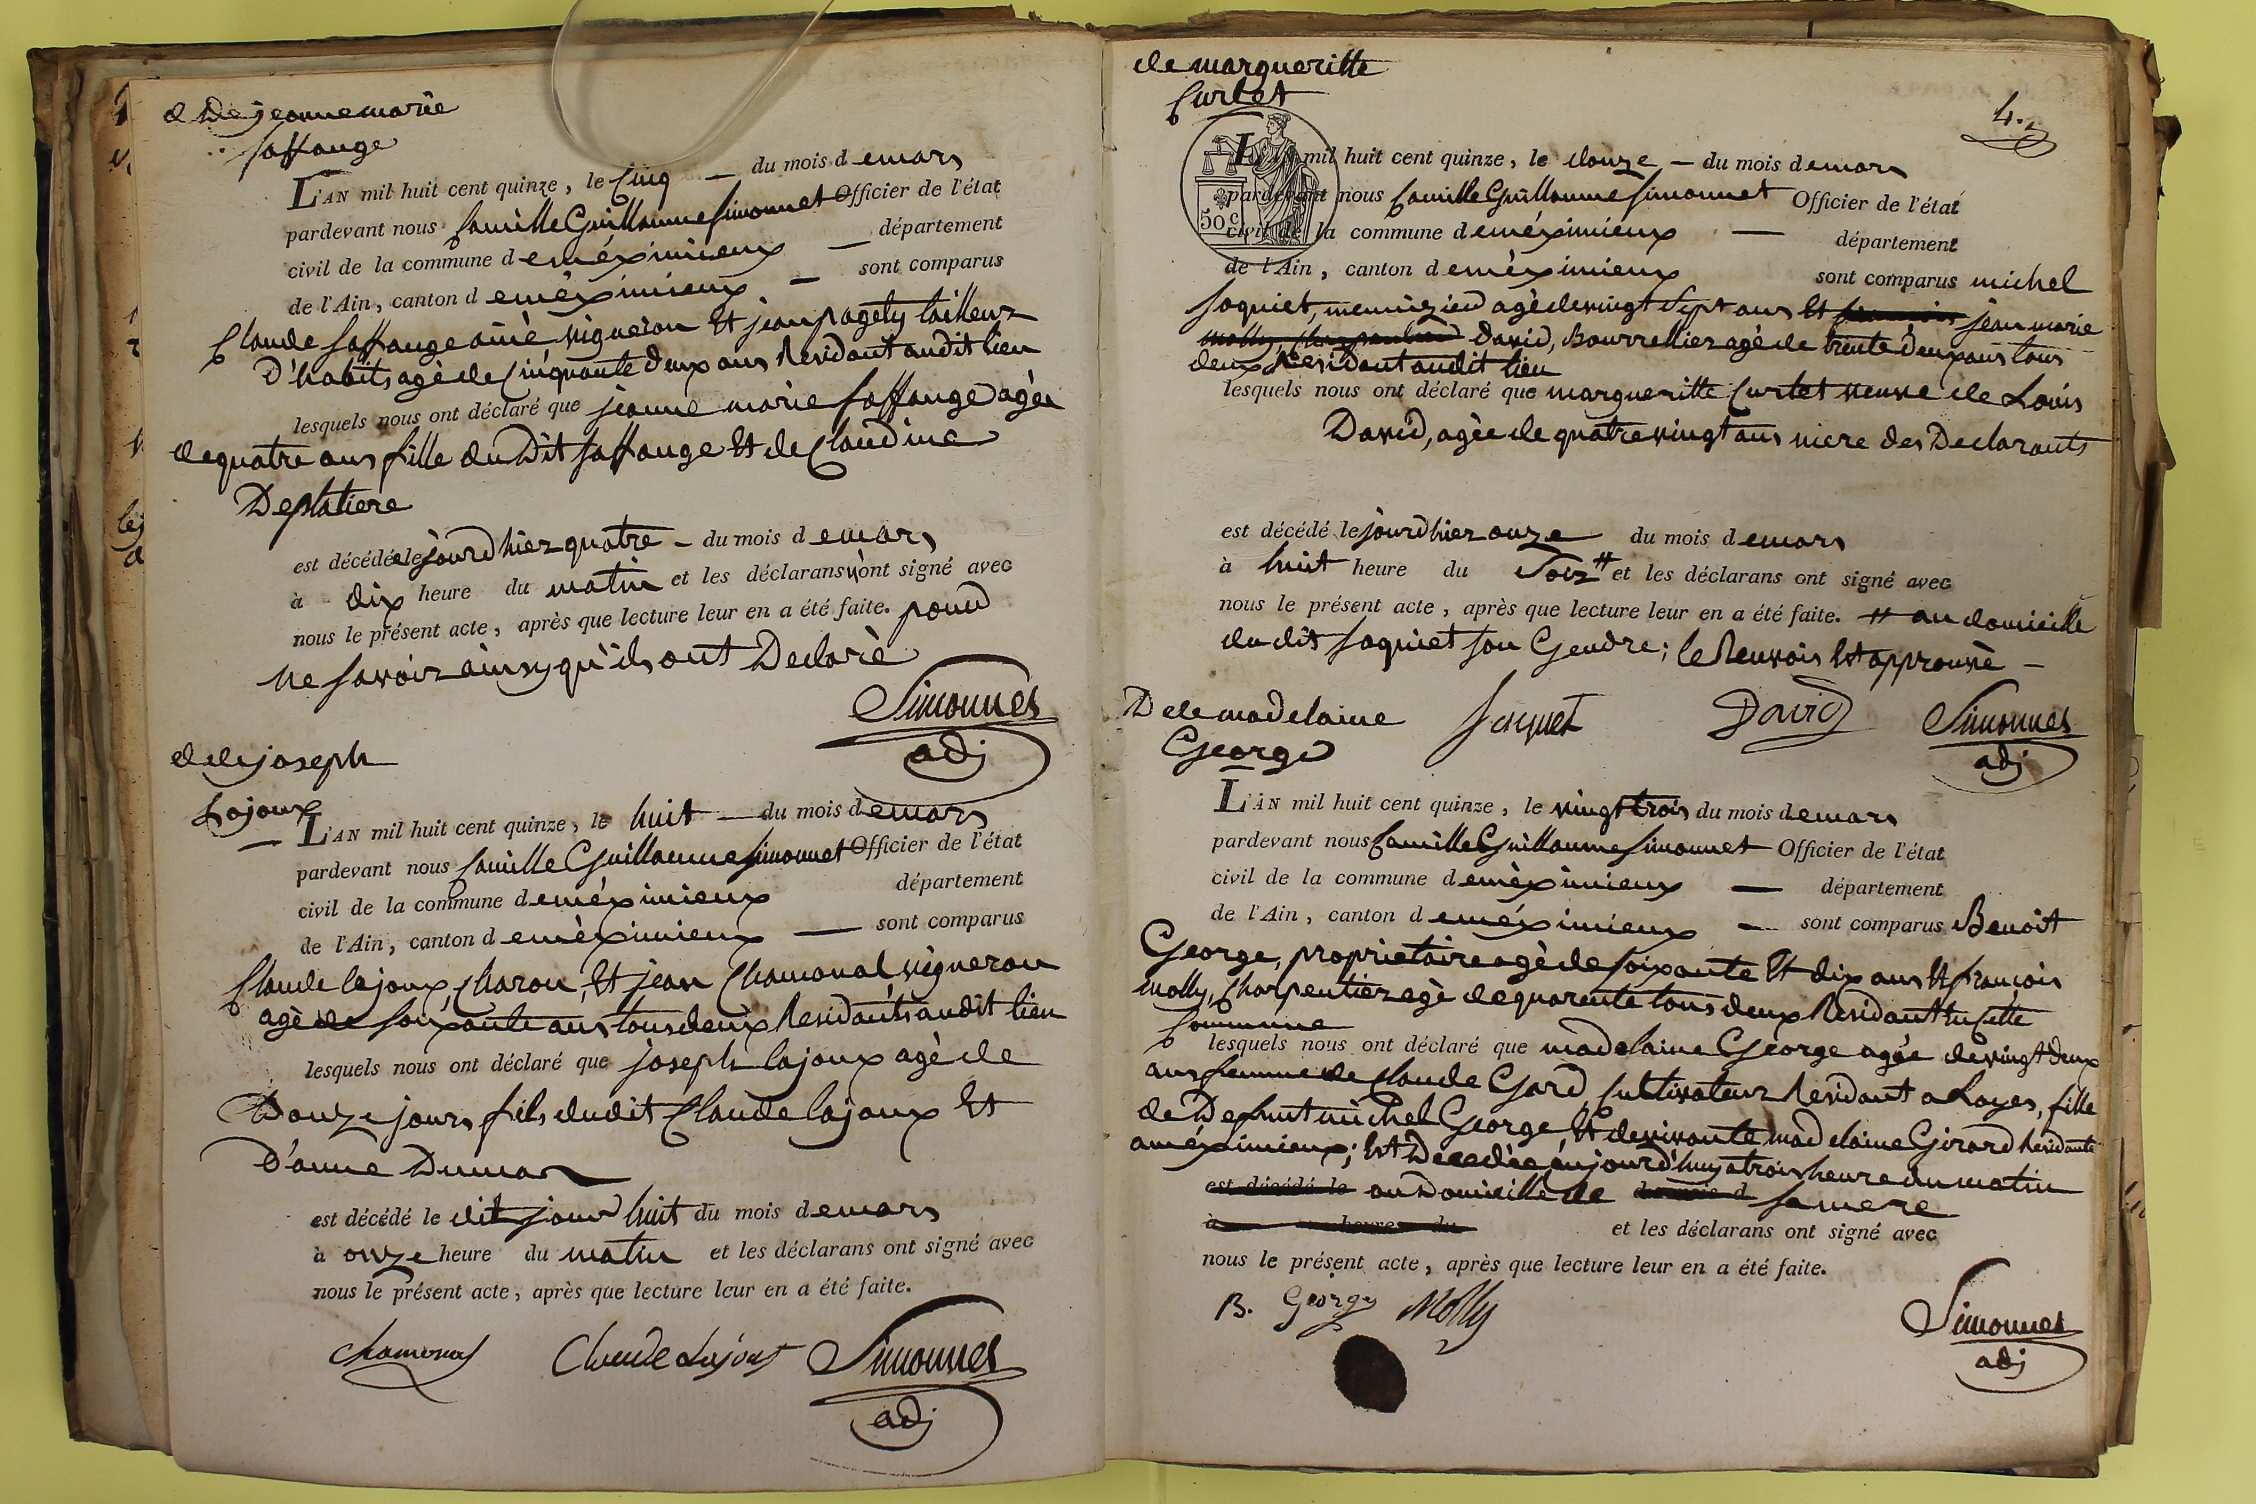 d De jeanne marie
Saffange
L'AN mil huit cent quinze, le Cinq — du mois d emars
pardevant nous Camille Guillaume Simonnet Officier de l'état
civil de la commune d eméximieux — département
de l'Ain, canton d eméximieux — sont comparus
Claude Saffange ainé vigneron Et jean pagety tailleur
D'habits agè de Cinquante deux ans Residant audit lieu
lesquels nous ont déclaré que jeanne marie Saffange agèe
de quatre ans fille du Dit Saffange Et de Claudine
Deplatiere
est décédée le jourd hier quatre — du mois d emars
à dix heure du matin et les déclarans n'ont signé avec
nous le présent acte, après que lecture leur en a été faite. pour
ne savoir ainsy qu'ils ont Declarè
Simonnet
adj
d de joseph
Lajoux
L'AN mil huit cent quinze, le huit — du mois d emars
pardevant nous Camille Guillaume Simonnet Officier de l'état
civil de la commune d eméximieux département
de l'Ain, canton d emèximieux — sont comparus
Claude lajoux, Charon, Et jean Chamonal, vigneron
agè de soixante ans tous deux Residants audit lieu
lesquels nous ont déclaré que joseph lajoux agè de
Douze jours fils dudit Claude lajoux Et
D'anne Dumas
est décédé le dit jour huit du mois d emars
à onze heure du matin et les déclarans ont signé avec
nous le présent acte, après que lecture leur en a été faite.
Chamonal Claude Lajoux Simonnet
adj
de margueritte
Curtet
4.
L'AN mil huit cent quinze, le douze — du mois d emars
pardevant nous Camille Guillaume Simonnet Officier de l'état
50 c
civil de la commune d eméximieux — département
de l'Ain, canton d emèximieux sont comparus michel
Joquiet, menuizier agè de vingt Sept ans Et francois jean marie
molly, Charpentier David, Bourrellier agè de trente deux ans tous
deux Residant audit lieu
lesquels nous ont déclaré que margueritte Curtet veuve de Louis
David, agèe de quatre vingt ans mere des Declarants
est décédé le jourd hier onze du mois d emars
à huit heure du Soir # et les déclarans ont signé avec
nous le présent acte, après que lecture leur en a été faite. # au domicille
du dit Joquiet son Gendre; le Renvois Est approuvè —
Joquiet David Simonnet
adj
D de madelaine
George
L'AN mil huit cent quinze, le vingt trois du mois d emars
pardevant nous Camille Guillaume Simonnet Officier de l'état
civil de la commune d emèximieux — département
de l'Ain, canton d eméximieux — sont comparus Benoit
George, proprietaire agè de soixante Et dix ans Et francois
molly, Charpentier agè de quarente tous deux Residant En Cette
Commune
lesquels nous ont déclaré que madelaine George agée de vingt deux
ans femme de Claude Gard, Cultivateur Residant a Loyes, fille
de Defunt michel George, Et de vivante madelaine Girard Residante
améximieux; Est Decedèe aujourd'huy a trois heure du matin
est décédé le au Domicille de du mois d sa mere
à heures du et les déclarans ont signé avec
nous le présent acte, après que lecture leur en a été faite.
B. George Molly Simonnet
adj